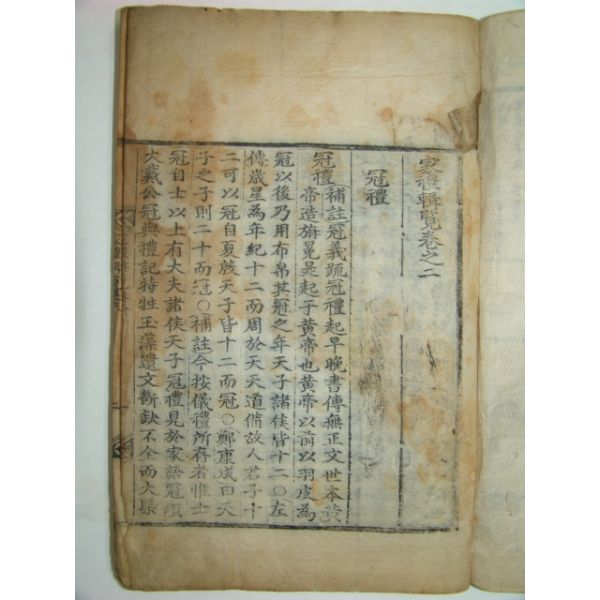 家禮輯覽卷之二
冠禮
冠禮補註冠義疏冠禮起早晚書傳無正文世本黃
帝造旃冕是起于黃帝也黃帝以前以羽皮為
冠以後乃用布帛其冠之年天子諸侯皆十二○左
傳歲星為年紀十二而周於天天道備故人君子十
二可以冠自夏殷天子皆十二而冠○鄭康成曰天
子之子則二十而冠○補註今按儀禮所存者惟士
冠自士以上有大夫諸侯天子冠禮見於家語冠頌
大戴公冠與禮記特牲玉藻遺文斷缺不全而大槩